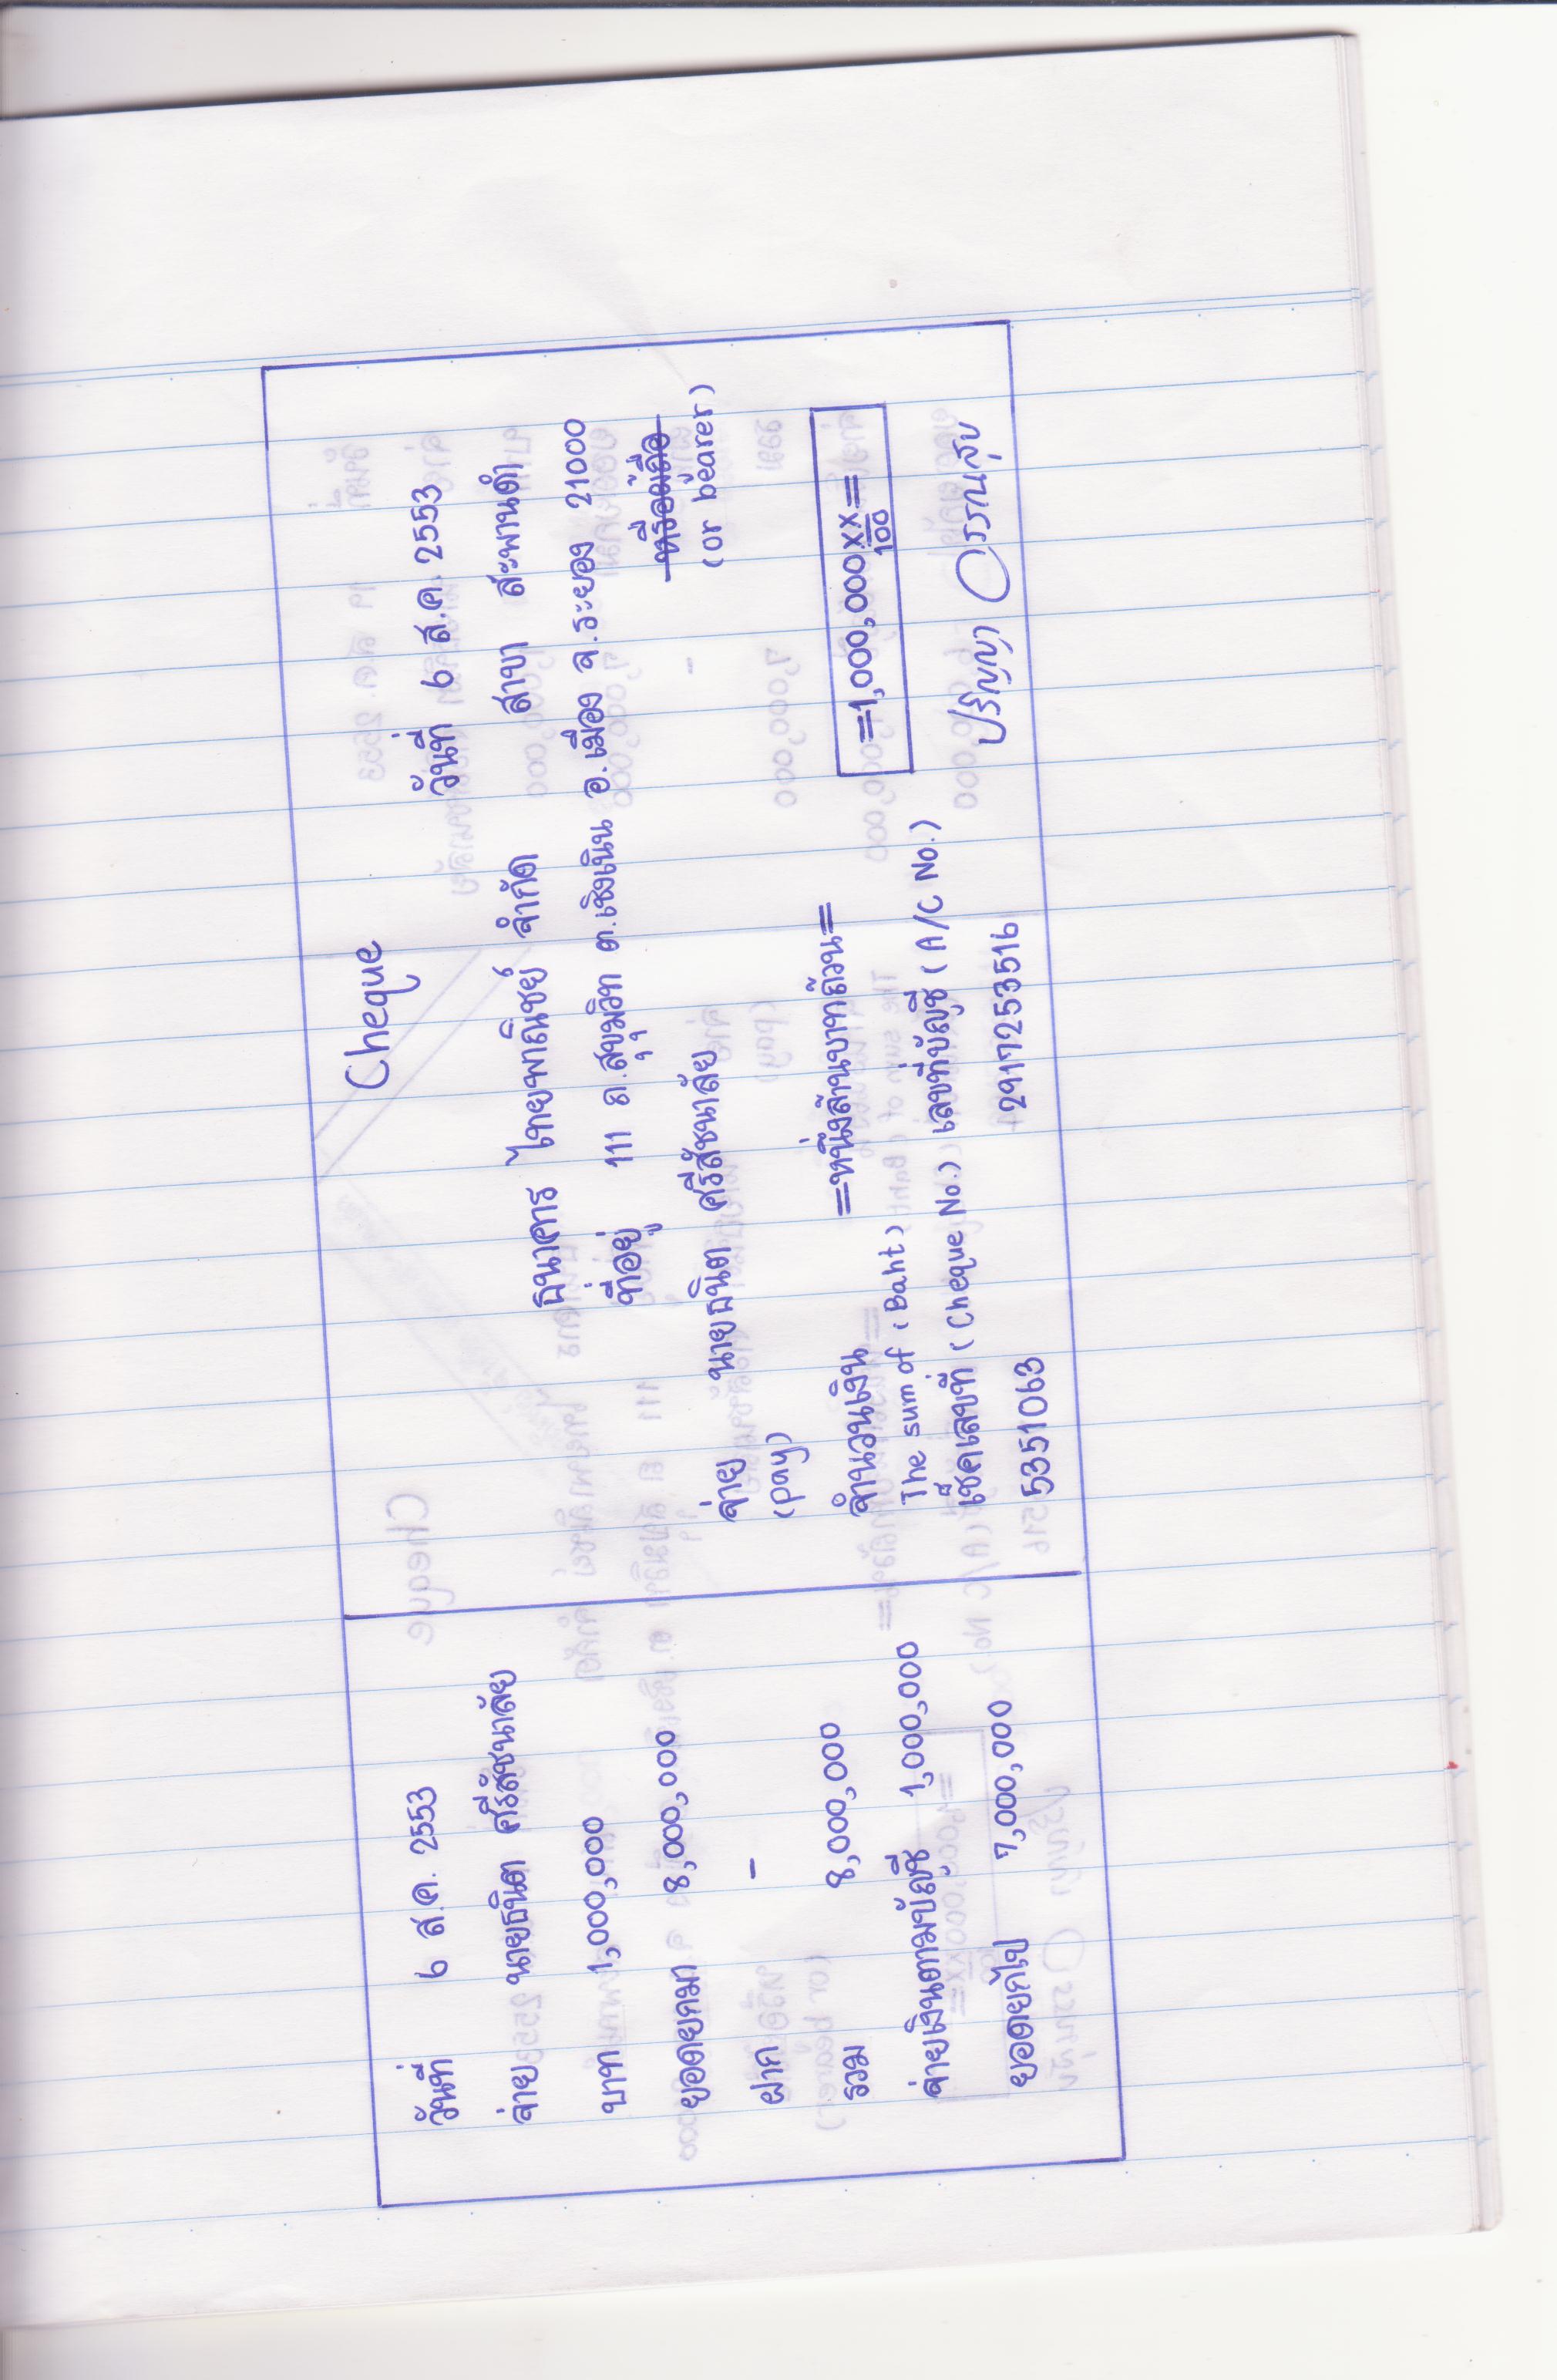 วันที่ 6 ส.ค. 2553
จ่าย นายธนิต ศรีสัชนาลัย
บาท 1,000,000
ยอดยกมา 8,000,000
ฝาก -
รวม 8,000,000
จ่ายเงินตามบัญชี 1,000,000
ยอดยกไป 7,000,000
Cheque
วันที่ 6 ส.ค. 2553
ธนาคาร ไทยพาณิชย์ จำกัด สาขา สะพานดำ
ที่อยู่ 111 ถ.สุขุมวิท ต.เชิงเนิน อ.เมือง จ.ระยอง 21000
จ่าย นายธนิต ศรีสัชนาลัย หรือผู้ถือ
(pay) (or bearer)
จำนวนเงิน =หนึ่งล้านบาทถ้วน= =1,000,000 XX/100=
The sum of (Baht)
เช็คเลขที่ (Cheque No.) เลขที่บัญชี (A/C No.)
5351063 2917253516 ปริญญา วรรณสุข